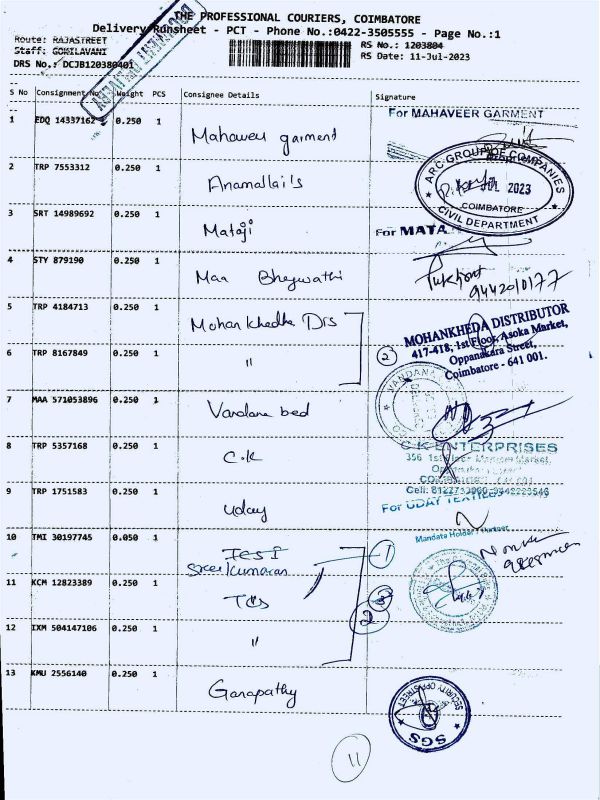 THE PROFESSIONAL COURIERS, COIMBATORE
Delivery Runsheet - PCT - Phone No.:0422-3505555 - Page No.:1
Route: RAJASTREET
RS No.: 1203804
Staff: GOKILAVANI
RS Date: 11-Jul-2023
DRS No.: DCJB120380401
S No Consignment No Weight PCS Consignee Details Signature
1 EDQ 14337162 0.250 1 Mahaweer garment For MAHAVEER GARMENT
2 TRP 7553312 0.250 1 Anamallai's
ARC GROUP OF COMPANIES
JUL 2023
COIMBATORE
CIVIL DEPARTMENT
3 SRT 14989692 0.250 1 Mataji For MATA
4 STY 879190 0.250 1 Maa Bhagwathi
9442010177
5 TRP 4184713 0.250 1 Mohankhedha Drs
MOHANKHEDA DISTRIBUTOR
417-418, 1st Floor, Asoka Market,
Oppanakara Street,
Coimbatore - 641 001.
6 TRP 8167849 0.250 1 " 2
VANDANA
7 MAA 571053896 0.250 1 Vandana bed
8 TRP 5357168 0.250 1 C.K
C K ENTERPRISES
356 1st Floor Market,
9 TRP 1751583 0.250 1 Uday
For UDAY TEXTILES
10 TMI 30197745 0.050 1 Sree kumaran 1
Mandate Holder / Partner
11 KCM 12823389 0.250 1 TCS
2
12 IXM 504147106 0.250 1 "
13 KMU 2556140 0.250 1 Ganapathy
SECURITY OPP STREET
SGS
11